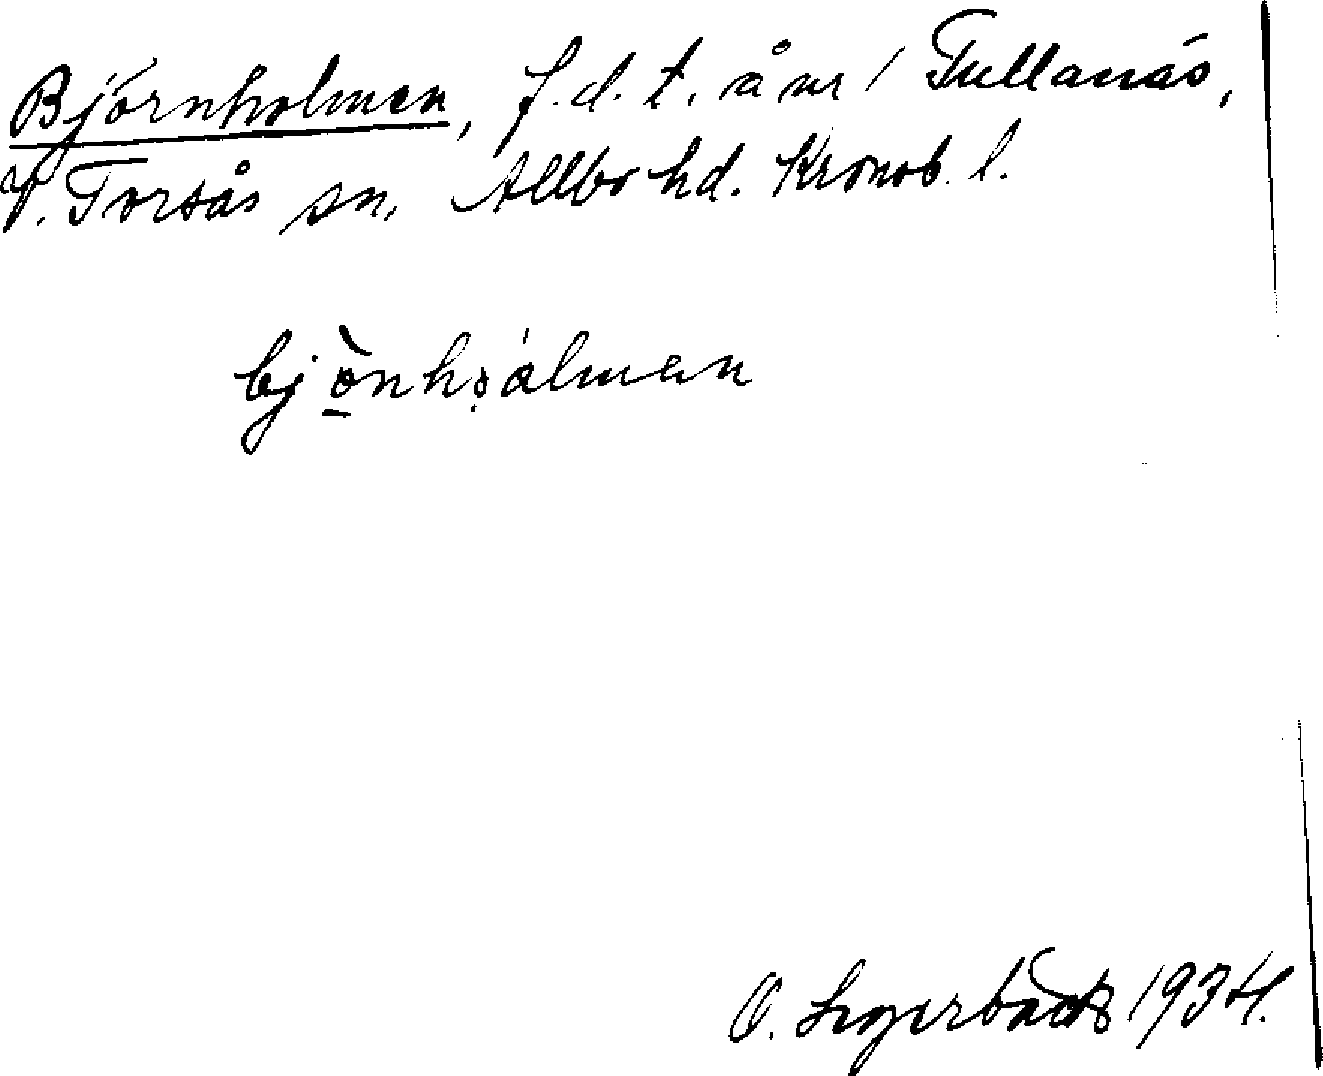 Björnholmen, f.d.t. å nr 1 Tullanäs,
V. Torsås sn, Allbo hd. Kronob. l.
bjònhọ́lmen
O. Segerbäck 1934.